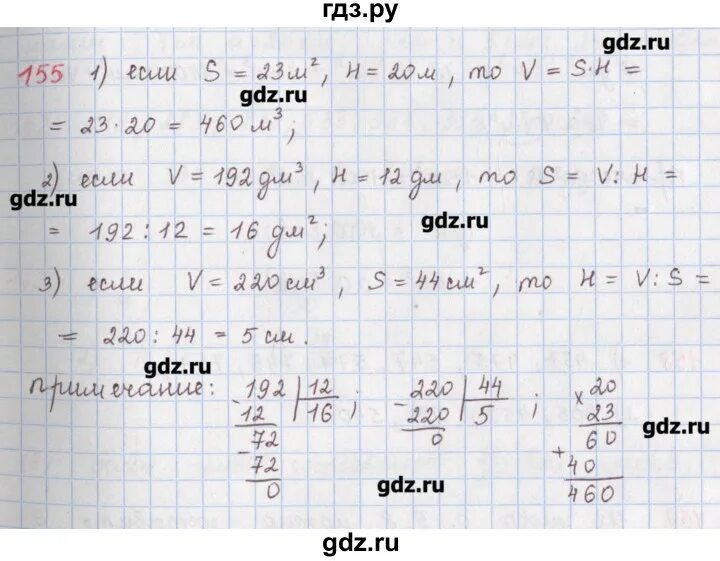 гдз.ру
gdz.ru
155 1) если S = 23м², H = 20м, то V = S·H =
gdz.ru
= 23·20 = 460 м³;
2) если V = 192 дм³, H = 12 дм, то S = V : H =
gdz.ru
gdz.ru
= 192 : 12 = 16 дм²;
3) если V = 220 см³, S = 44 см², то H = V : S =
= 220 : 44 = 5 см.
gdz.ru
примечание: 192 | 12 220 | 44 × 20
- 12 | 16 ; - 220 | 5 ; 23
72 0 60
gdz.ru
- 72 + 40
0 460
gdz.ru
gdz.ru